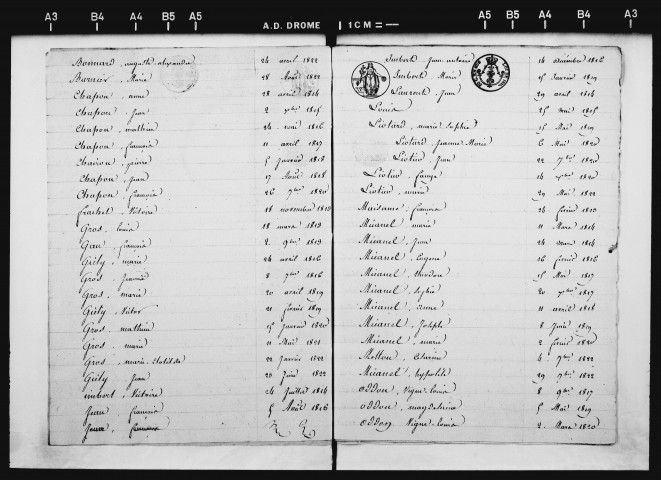 A3 B4 A4 B5 A5 A.D. DROME 1CM= A5 B5 A4 B4 A3
Bonnard auguste alexandre 24 avril 1822
Barnier Marie 28 Août 1822
Chapon anne 28 avril 1814
Chapon Jean 2 1815
Chapon mathieu 24 1816
Chapon françois 11 avril 1817
pierre 5 Janvier 1818
Chapon Jean 17 Août 1818
Chapon françois 26 7bre 1820
Frachet Victoire 18 novembre
Gros louis 18 mars 1813
françois 2 9bre 1813
Giély marie 24 avril 1816
Gros 8 1816
Gros marie 20 avril 1819
Giély Victor 21 février 1819
Gros mathieu 15 Janvier 1820
Gros marie 11 Mai 1821
Gros marie clotilde 22 Janvier 1822
Giély Jean 23 Juin 1822
imbert Victoire 24 Juillet 1814
Jean françois 5 Août 1816
Imbert Jean antoine 14 décembre 1816
Imbert Marie 15 Janvier 1819
Laurent Jean 29 avril 1814
Louis 25 mai 1815
Liotard marie Sophie 15 Mai 1819
Liotard Jeanne Marie 6 Mai 1820
Jean 22 7bre 1820
14 1820
marie 29 Mai 1822
Maisans françois 24 février 1813
Micanel marie 11 Mars 1814
Micanel Jean 24 mars 1814
Micanel Eugene 16 février 1816
Micanel théodore 15 Mai 1817
Micanel Sophie 20 1817
Micanel anne 11 avril 1818
Micanel Joseph 8 Juin 1819
Micanel marie 2 février 1820
4 7bre 1822
Micanel hypolite 29 9bre 1822
oddon Vigne louis 8 9bre 1817
oddon magdelaine 5 Mai 1819
oddon Vigne louis 2 Mars 1820